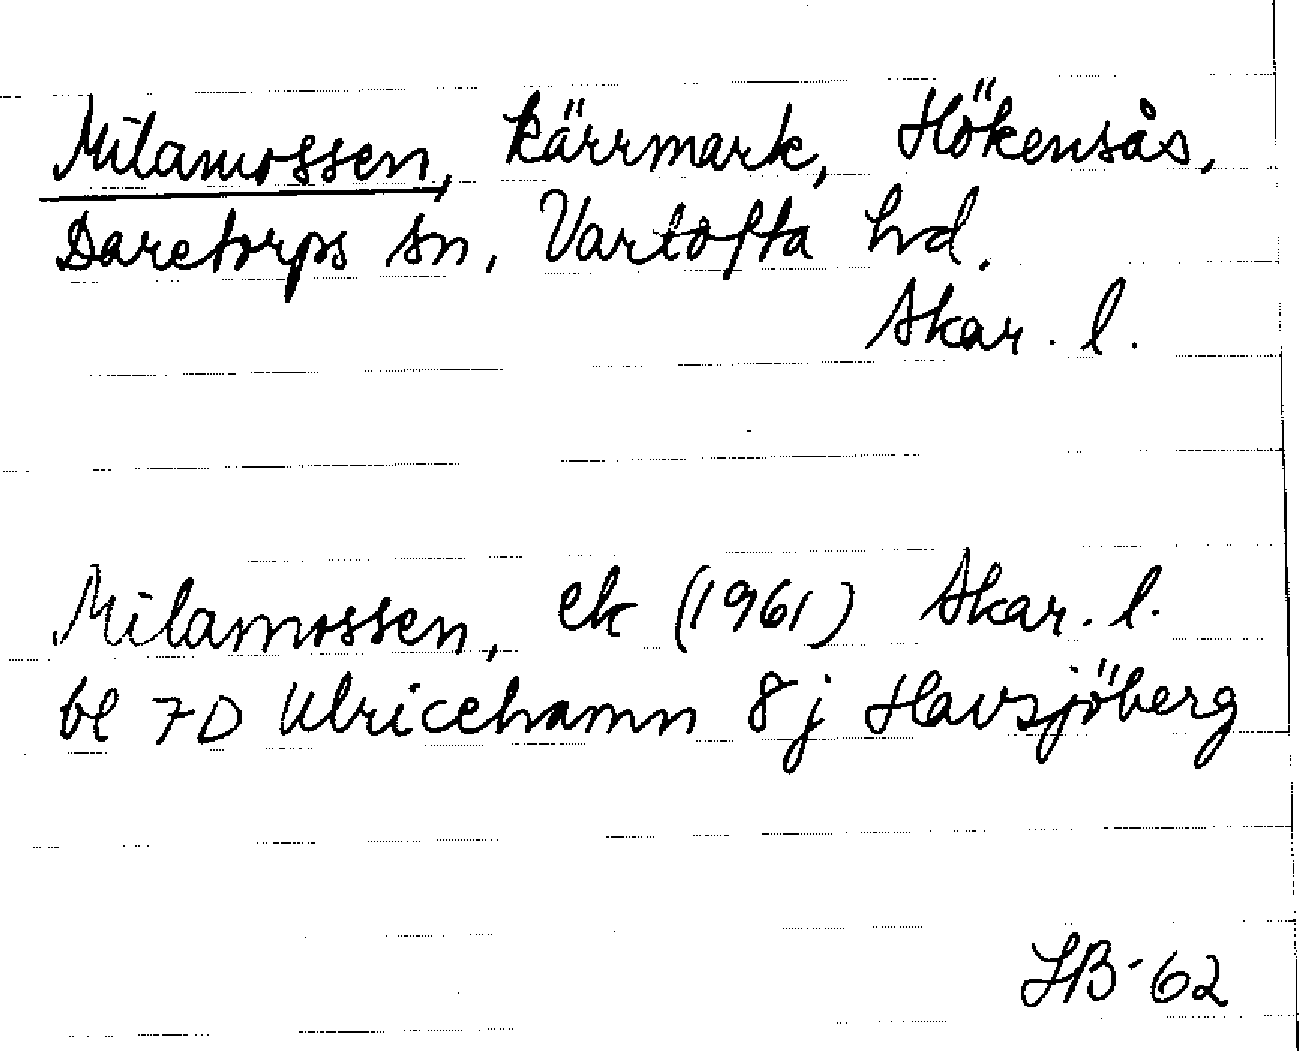 Milamossen, kärrmark, Hökensås,
Daretorps sn, Vartofta hd.
Skar. l.
Milamossen, ek (1961) Skar. l.
bl 7D Ulricehamn 8j Havsjöberg
HB-62